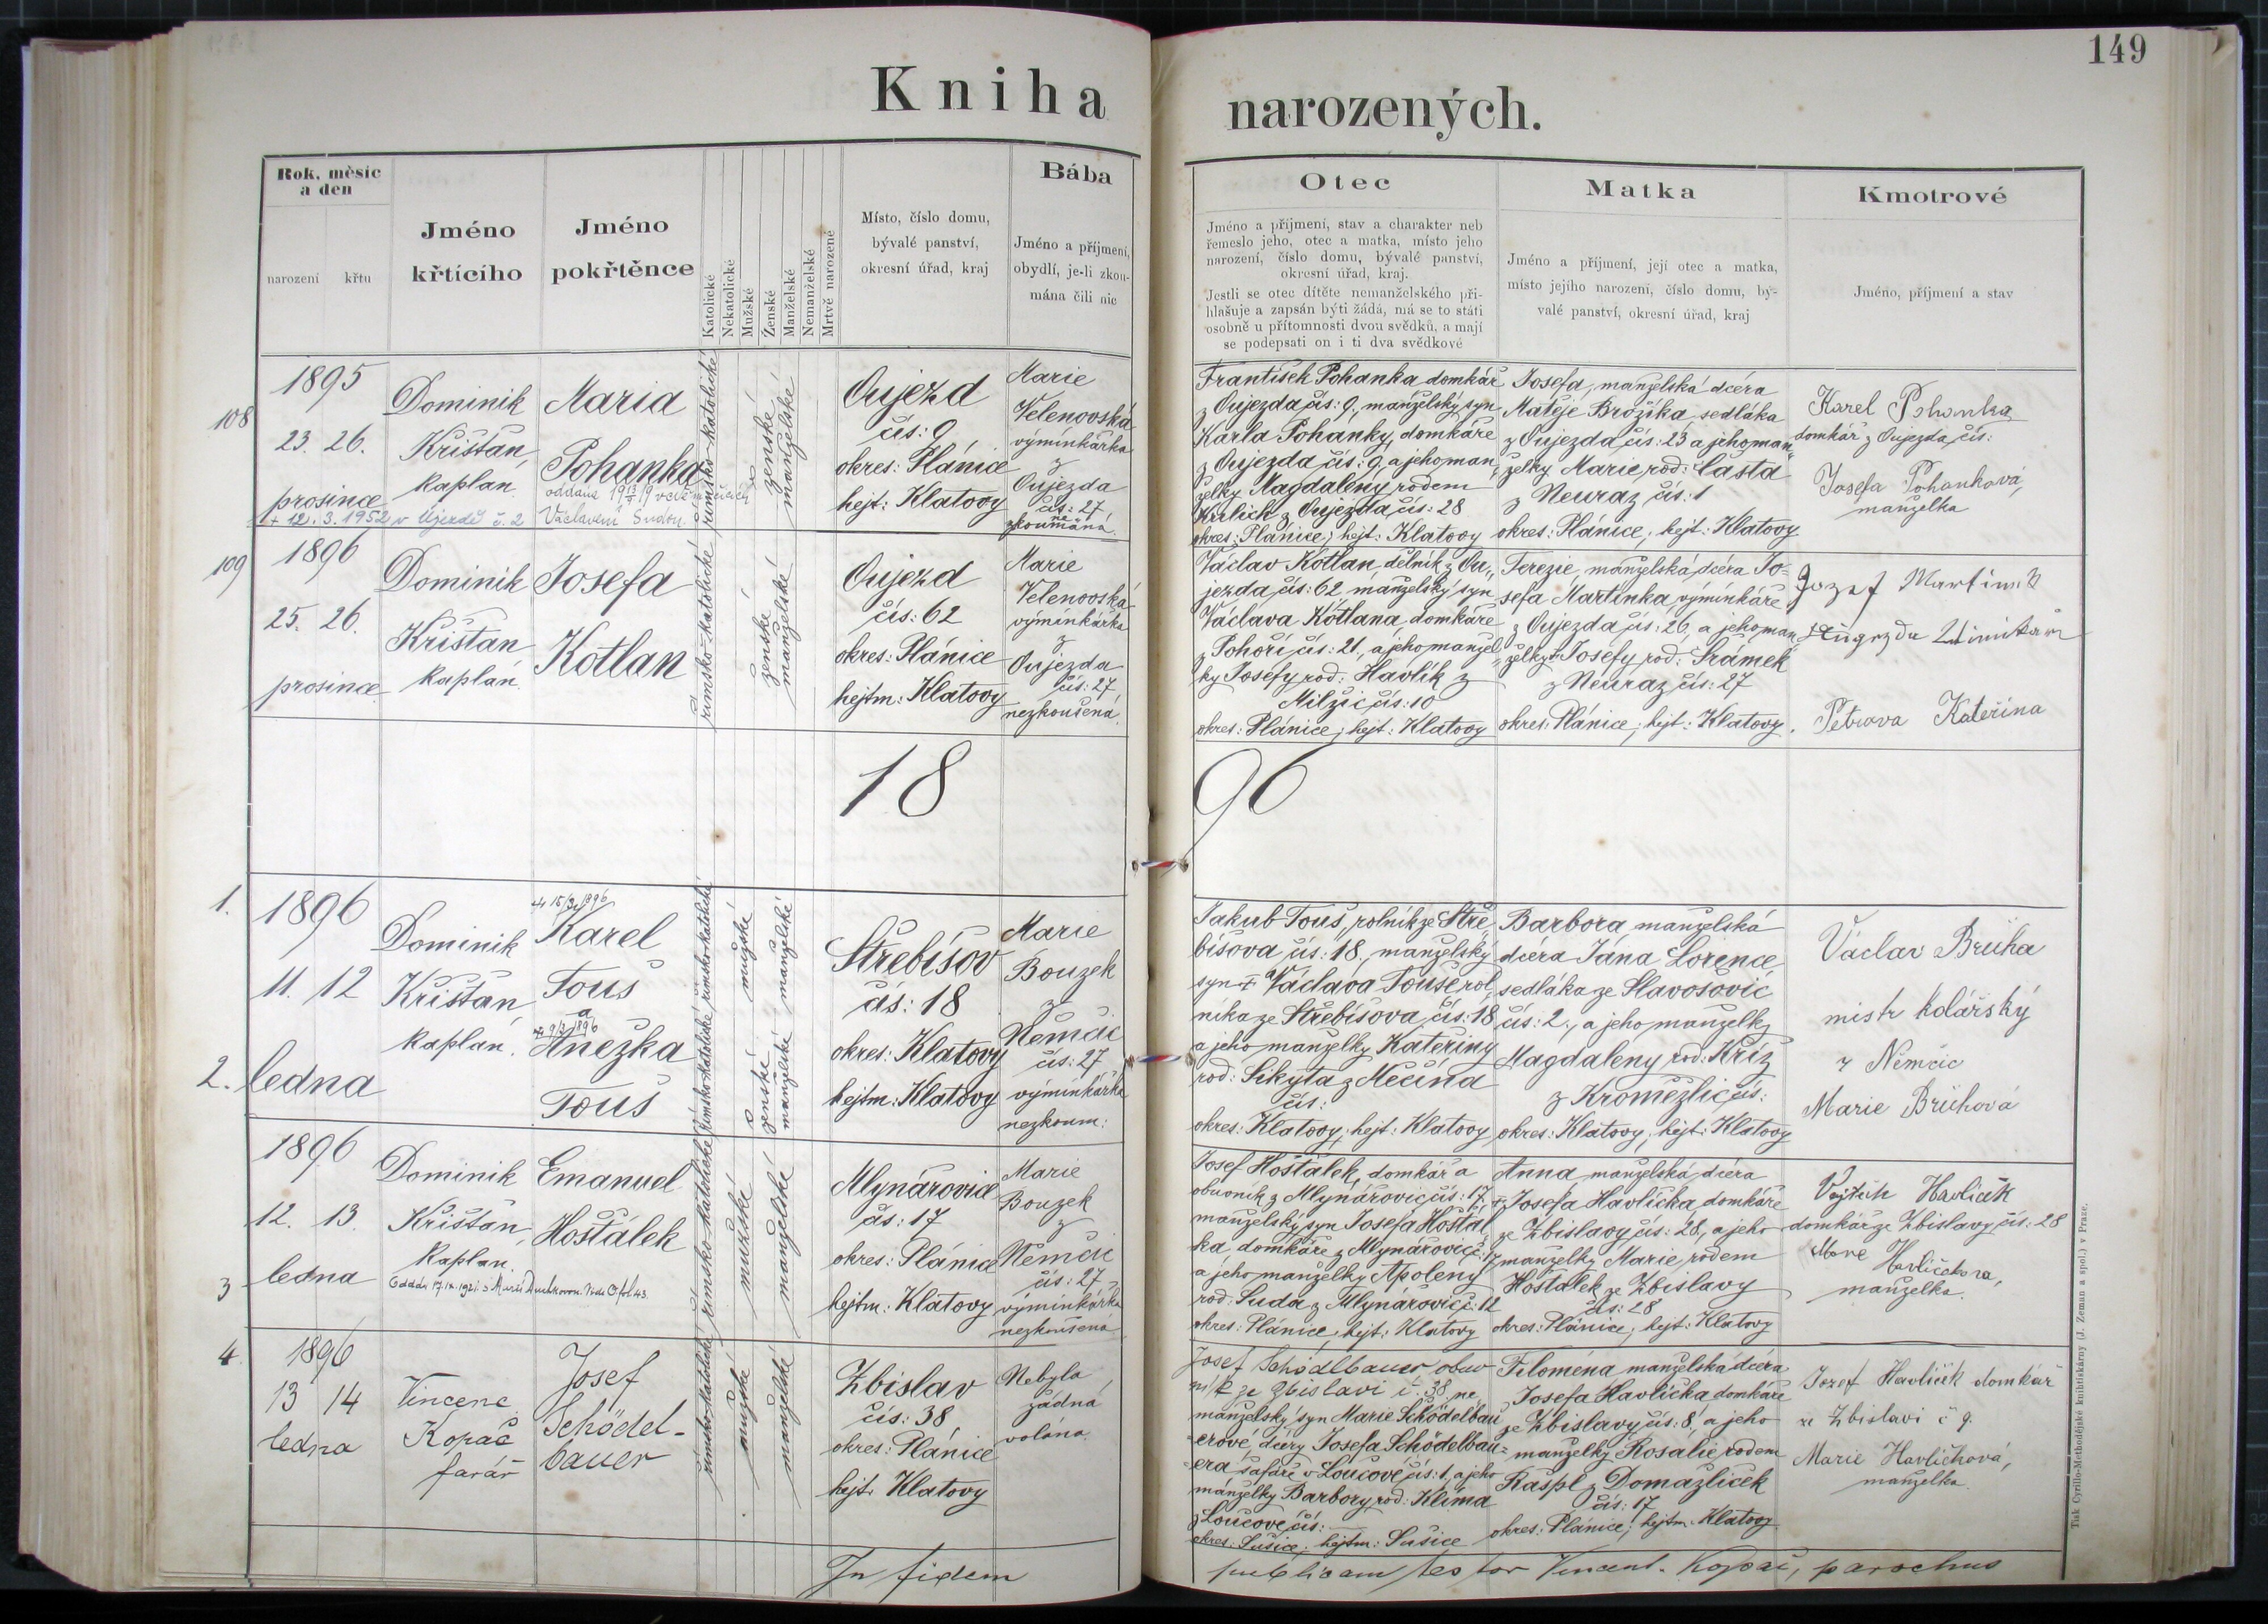 149
Kniha narozených.
Rok, měsíc
a den
narození křtu
Jméno
křtícího
Jméno
pokřtěnce
Katolické
Nekatolické
Mužské
Ženské
Manželské
Nemanželské
Mrtvě narozené
Místo, číslo domu,
bývalé panství,
okresní úřad, kraj
Bába
Jméno a příjmení,
obydlí, je-li zkou-
mána čili nic
Otec
Jméno a příjmení, stav a charakter neb
řemeslo jeho, otec a matka, místo jeho
narození, číslo domu, bývalé panství,
okresní úřad, kraj.
Jestli se otec dítěte nemanželského při-
hlašuje a zapsán býti žádá, má se to státi
osobně u přítomnosti dvou svědků, a mají
se podepsati on i ti dva svědkové
Matka
Jméno a příjmení, její otec a matka,
místo jejího narození, číslo domu, bý-
valé panství, okresní úřad, kraj
Kmotrové
Jméno, příjmení a stav
108
1895
23. 26.
prosince
+ 12. 3. 1952 v Újezdě č. 2
Dominik
Křišťan,
kaplan.
Maria
Pohanka
oddána
Václavem Sudou
římsko-katolické
ženské
manželské
Oujezd
čís: 9
okres: Plánice
hejt: Klatovy
Marie
Velenovská
výminkářka
z
Oujezda
čís: 27
ne
zkoumána.
František Pohanka domkář
z Oujezda čís: 9, manželský syn
Karla Pohanky, domkáře
z Oujezda čís: 9, a jeho man„
želky Magdaleny rodem
Králick z Oujezda čís: 28
okres: Plánice; hejt: Klatovy
Josefa, manželská dcéra
Matěje Brožíka, sedláka
z Oujezda čís: 23 a jeho man„
želky Marie rod: Časta
z Neuraz čís: 1
okres: Plánice; hejt: Klatovy
Karel Pohanka
domkář z Oujezda čís:
Josefa Pohanková,
manželka
109
1896
25. 26.
prosince
Dominik
Křišťan
kaplán.
Josefa
Kotlan
římsko-katolické
ženské
manželské
Oujezd
čís: 62
okres: Plánice
hejtm: Klatovy
Marie
Velenovská
výminkářka
z
Oujezda
čís: 27
nezkoušená.
Václav Kotlan dělník z Ou„
jezda čís: 62, manželský syn
Václava Kotlana domkáře
z Pohoří čís: 21, a jeho manžel„
ky Josefy rod: Havlík z
Milžic čís: 10
okres: Plánice; hejt: Klatovy
Terezie, manželská dcéra Jo-
sefa Martínka, výminkáře
z Oujezda čís: 26, a jeho man„
želky Josefy rod: Šrámek
z Neuraz čís: 27
okres: Plánice; hejt: Klatovy.
Jozef Martinek
Petrova Kateřina
1896
1.
2.
1896
11. 12
ledna
Dominik
Křišťan,
kaplán.
Karel
Touš
a
Anežka
Touš
římsko-katolické
římsko-katolické
mužské
ženské
manželské
manželské
Střebíšov
čís: 18
okres: Klatovy
hejtm: Klatovy
Marie
Bouzek
z
Němčic
čís: 27
výminkářka
nezkoum:
Jakub Touš, rolník ze Stře„
bíšova čís: 18, manželský
syn + Václava Touše rol„
níka ze Střebíšova, čís: 18,
a jeho manželky Kateřiny
rod: Sikyta z Mečína
čís:
okres: Klatovy; hejt: Klatovy
Barbora manželská
dcéra Jána Lorence,
sedláka ze Slavošovic
čís: 2., a jeho manželky
Magdaleny rod: Kříž
z Kroměžlic čís:
okres: Klatovy; hejt: Klatovy
Václav Bruha
mistr kolářský
z Němčic
Marie Bruhová
3
1896
12. 13.
ledna
Dominik
Křišťan,
kaplan.
Emanuel
Hošťálek
římsko-katolické
mužské
manželské
Mlynářovice
čís: 17
okres: Plánice
hejtm: Klatovy
Marie
Bouzek
z
Němčic
čís: 27
výminkářka
nezkoušená
Josef Hošťálek, domkář a
obuvník z Mlynářovic čís: 17,
manželský syn Josefa Hošťál„
ka, domkáře z Mlynářovic č: 17
a jeho manželky Apoleny
rod: Suda z Mlynářovic č: 12
okres: Plánice; hejt: Klatovy
Anna manželská dcéra
+ Josefa Havlíčka domkáře
ze Zbislavy čís: 28, a jeho
manželky Marie, rodem
Hošťálek ze Zbislavy
čís: 28
okres: Plánice; hejt: Klatovy
Vojtěch Havlíček
domkář ze Zbislavy čís: 28
Havlíčkova,
manželka.
4.
1896
13 14
ledna
Vincenc
Kopáč
farář
Josef
Schödel-
bauer
římsko-katolické
mužské
manželské
Zbislav
čís: 38
okres: Plánice
hejt: Klatovy
Nebyla
žádná
volána.
Josef Schödlbauer obuv
ník ze Zbislavi č. 38 ne
manželský syn Marie Schödelbau
erové, dcéry Josefa Schödelbau=
era šafáře v Loučové čís: 1, a jeho
manželky Barbory, rod: Klíma
z Loučové čís:
okres: Sušice; hejtm: Sušice
Filoména manželská dcéra
Josefa Havlíčka domkáře
ze Zbislavy čís: 8, a jeho
manželky Rosalie, rodem
Raspl z Domažliček
čís: 17
okres: Plánice; hejtm: Klatovy
Jozef Havlíček domkář
ze Zbislavi č 9.
Marie Havlíčková,
manželka.
In fidem publicam testor Vincent. Kopáč, parochus
Tisk Cyrillo-Methodějské knihtiskárny (J. Zeman a spol.) v Praze.